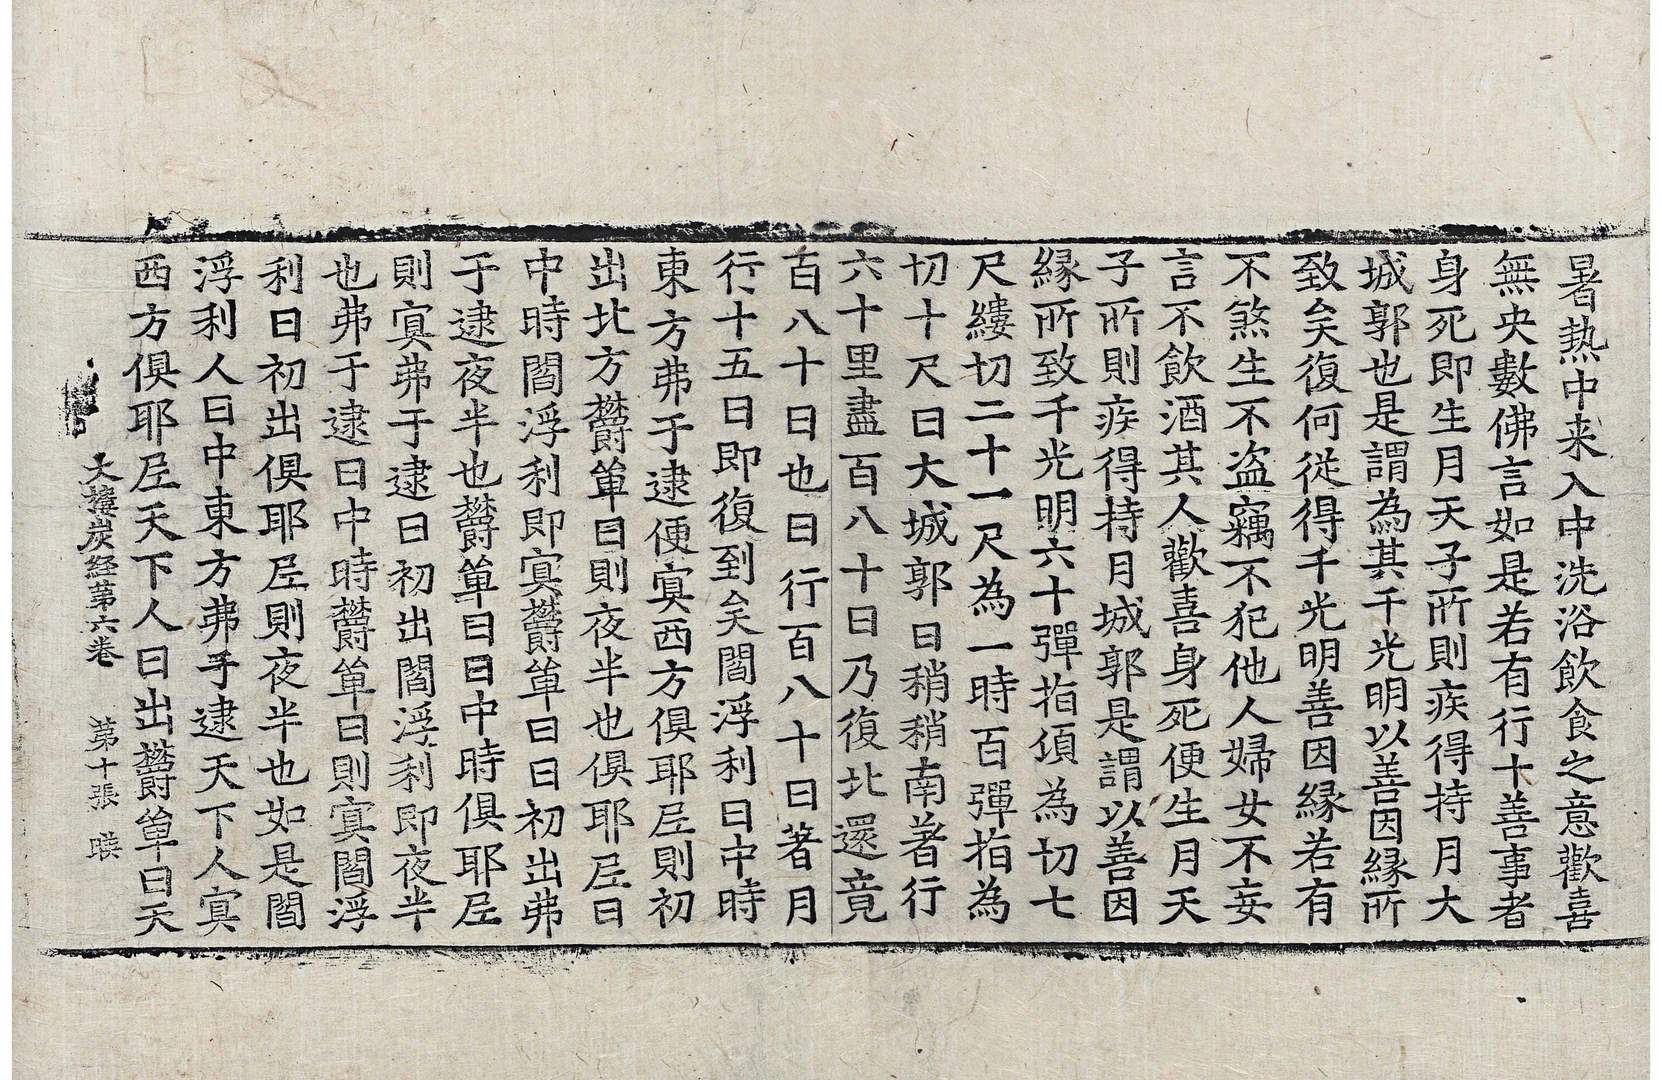 暑熱中来入中洗浴飲食之意歡喜
無央數佛言如是若有行十善事者
身死即生月天子所則疾得持月大
城郭也是謂為其千光明以善因縁所
致矣復何從得千光明善因縁若有
不煞生不盗竊不犯他人婦女不妄
言不飲酒其人歡喜身死便生月天
子所則疾得持月城郭是謂以善因
縁所致千光明六十彈指頃為切七
尺縷切二十一尺為一時百彈指為
切十尺日大城郭日稍稍南著行
六十里盡百八十日乃復北還竟
百八十日也日行百八十日著月
行十五日即復到矣閻浮利日中時
東方弗于逮便𡨋西方俱耶尼則初
出北方欝單曰則夜半也俱耶尼日
中時閻浮利即𡨋欝單曰日初出弗
于逮夜半也欝單曰日中時俱耶尼
則𡨋弗于逮日初出閻浮利即夜半
也弗于逮日中時欝單曰則𡨋閻浮
利日初出俱耶尼則夜半也如是閻
浮利人日中東方弗于逮天下人𡨋
西方俱耶尼天下人日出欝單曰天
大樓炭経第六卷　第十張